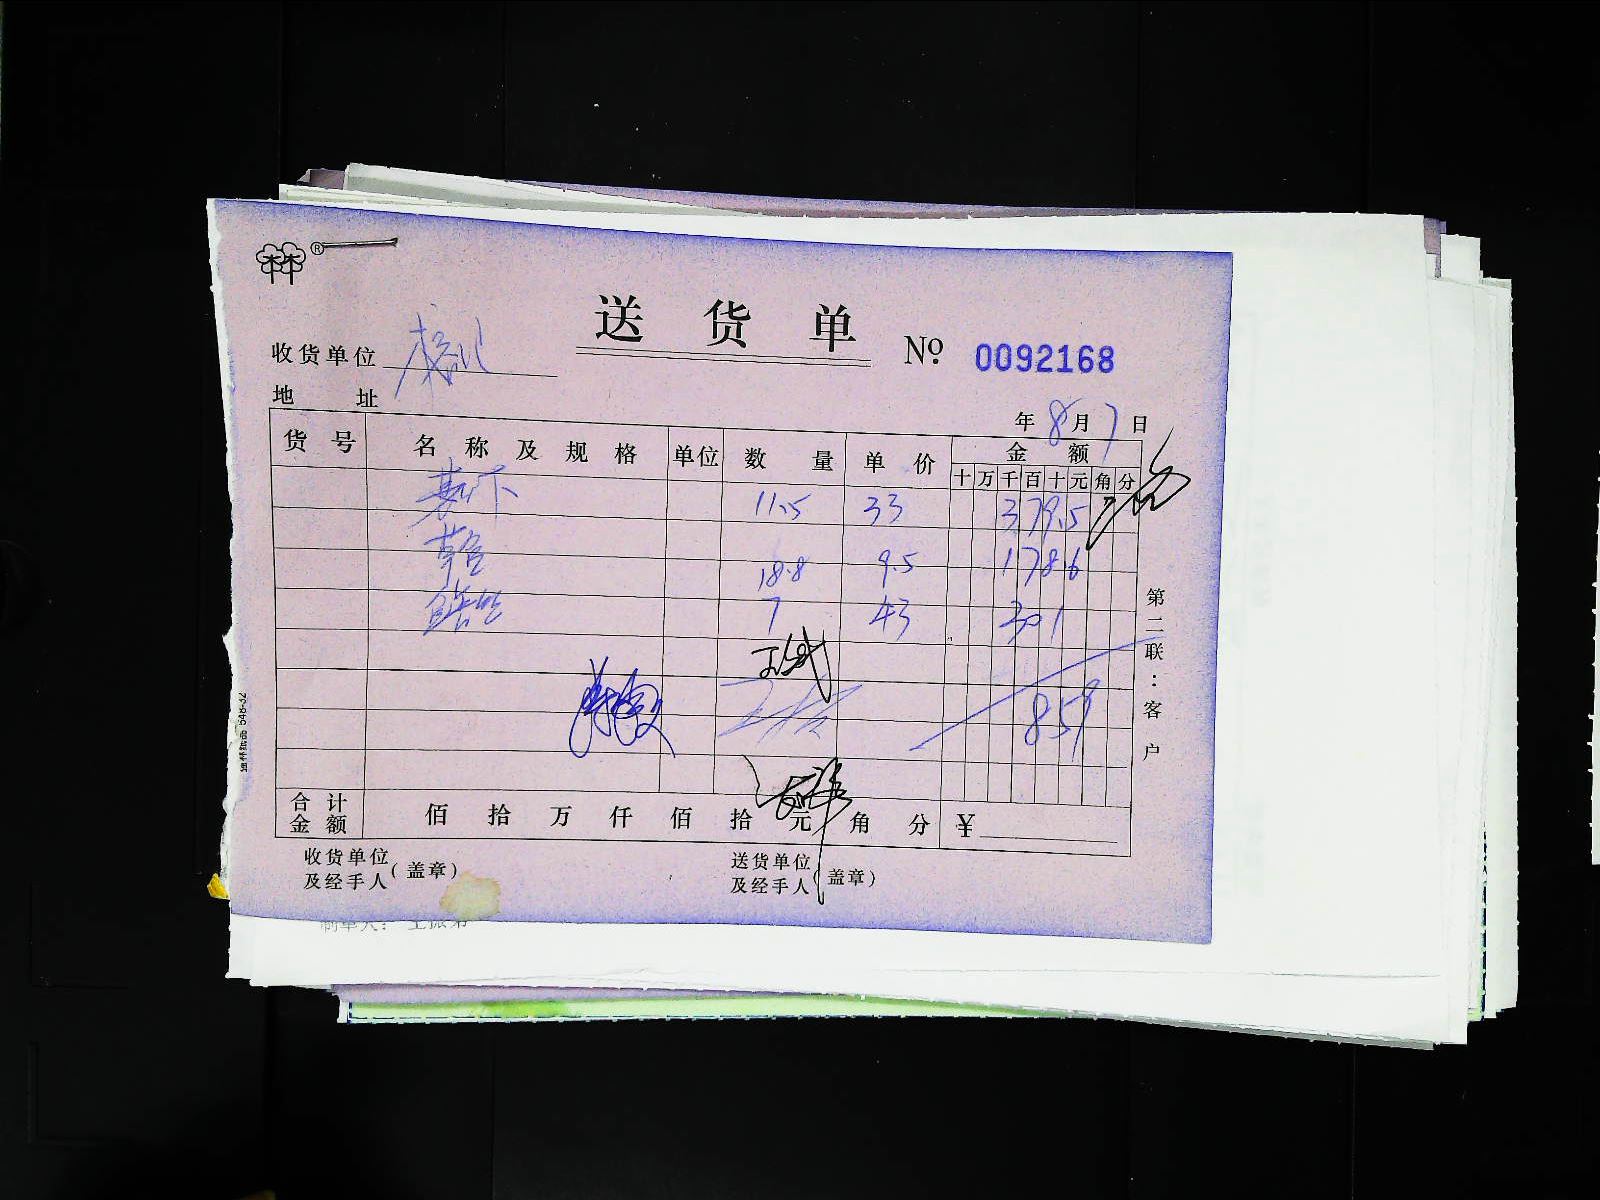 ®
送 货 单
收货单位
№ 0092168
地 址
年 8 月 7 日
货 号 名 称 及 规 格 单位 数 量 单 价 金 额
十 万 千 百 十 元 角 分
11.5 33 379.5
草鱼 18.8 9.5 178.6
7 43 301
859
合 计 金 额 佰 拾 万 仟 佰 拾 元 角 分 ¥
收货单位及经手人(盖章) 送货单位及经手人(盖章)
第二联:客户